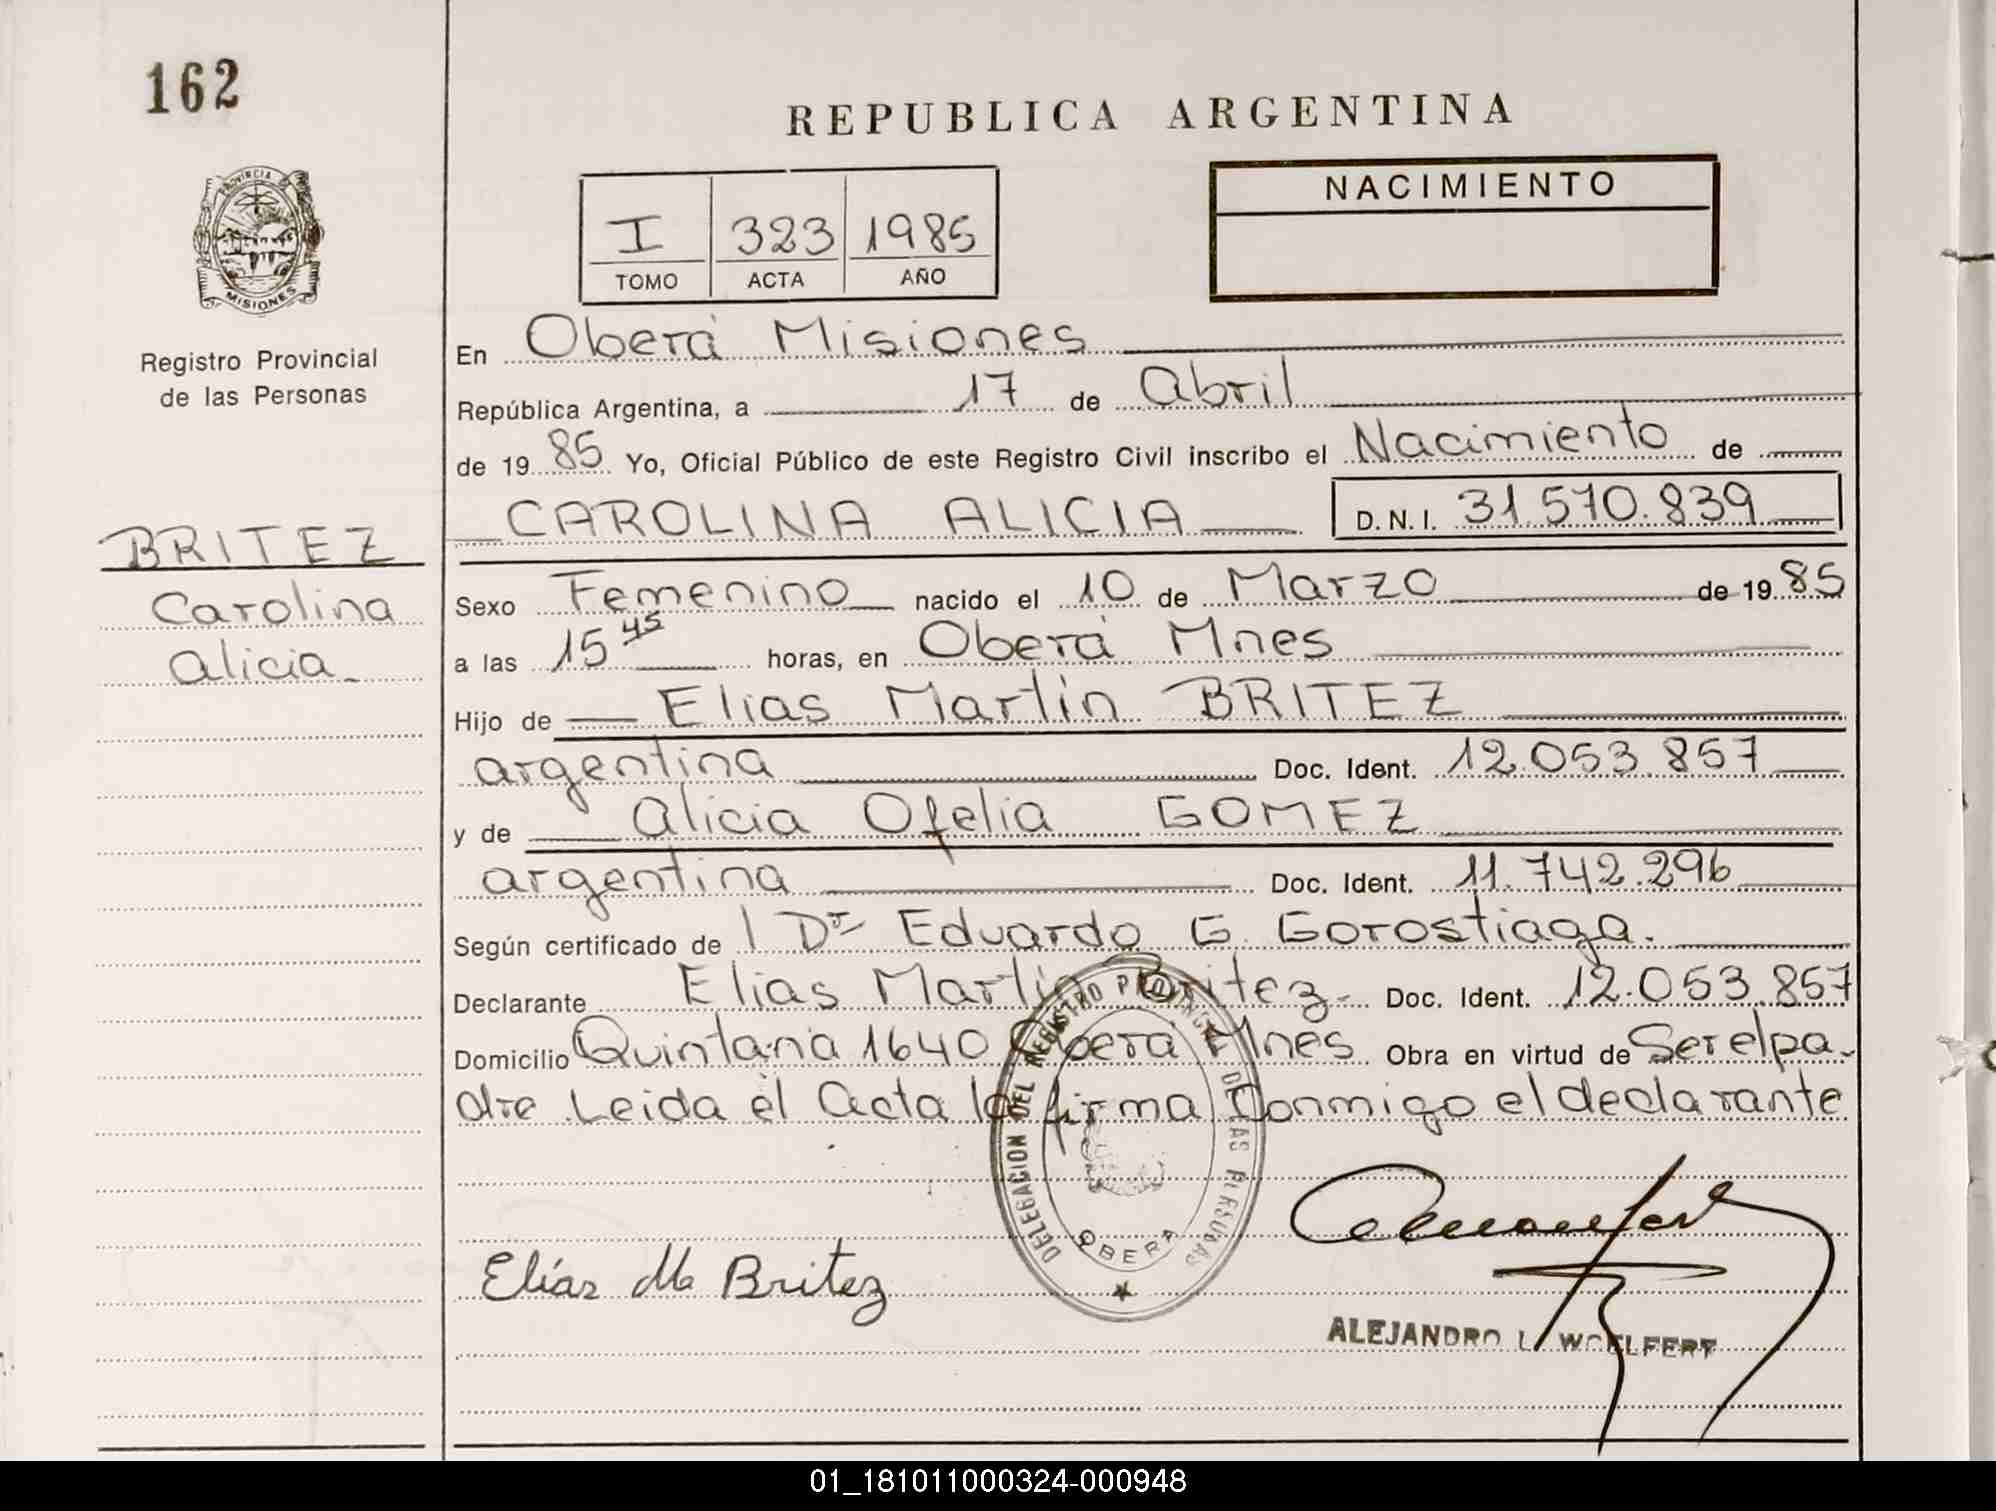 162
REPUBLICA ARGENTINA
PROVINCIA DE
MISIONES
Registro Provincial
de las Personas
I 323 1985
TOMO ACTA AÑO
NACIMIENTO
BRITEZ
Carolina
Alicia
En Oberá Misiones
República Argentina, a 17 de Abril
de 19 85 Yo, Oficial Público de este Registro Civil inscribo el Nacimiento de
CAROLINA ALICIA D. N. I. 31.570.839
Sexo Femenino nacido el 10 de Marzo de 19 85
a las 15 45 horas, en Oberá Mnes
Hijo de Elias Martín BRITEZ
argentina Doc. Ident. 12.053.857
y de Alicia Ofelia GOMEZ
argentina Doc. Ident. 11.742.296
Según certificado de l Dr Eduardo G. Gorostiaga.
Declarante Elias Martin Britez- Doc. Ident. 12.053.857
Domicilio Quintana 1640 Oberá Mnes Obra en virtud de Ser el pa-
dre Leida el Acta la firma Conmigo el declarante
DELEGACION DEL REGISTRO PROVINCIAL DE LAS PERSONAS
OBERA
Elías M Britez
ALEJANDRO L. WOELFERT
01_181011000324-000948